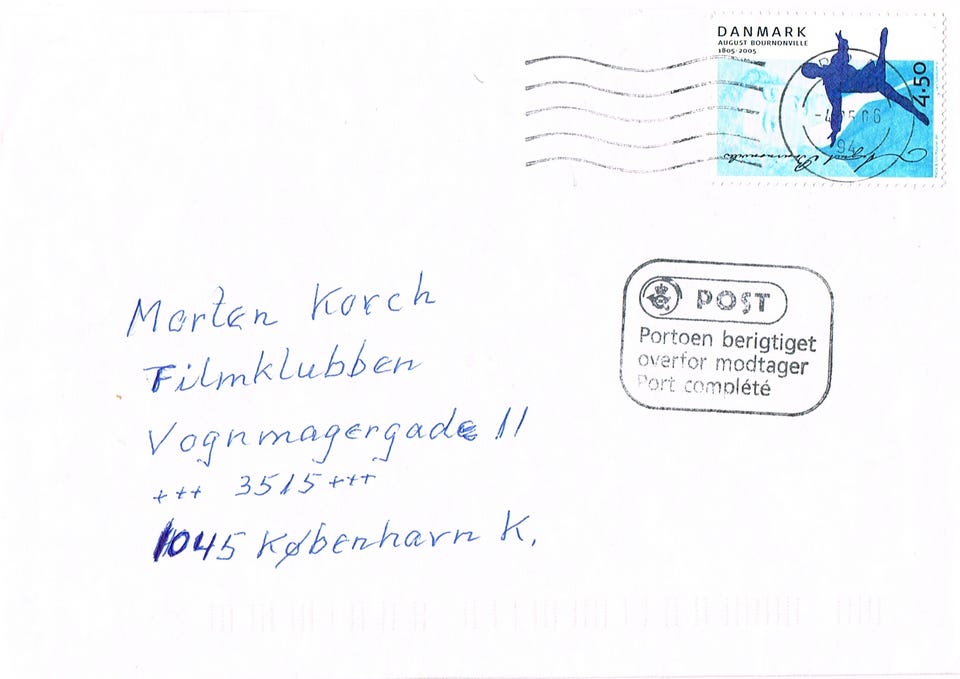 DANMARK
AUGUST BOURNONVILLE
1805-2005
4.50
August Bournonville
94
POST
Portoen berigtiget
overfor modtager
Port complété
Morten Korch
Filmklubben
Vognmagergade 11
+++ 3515 +++
1045 København K.